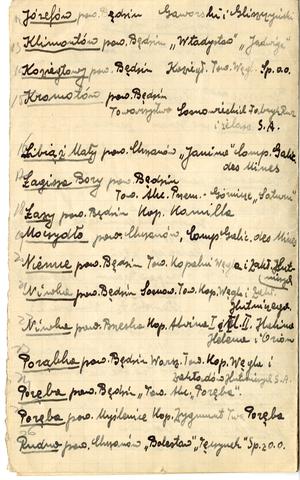 Józefów pow. Będzin Gaworski i Bliszczyński
Klimontów pow. Będzin „Władysław" „Jadwiga"
Koziegłowy pow. Będzin Koziegł. Tow. Węgl. Sp. z o.o.
Kromołów pow. Będzin
Towarzystwo Sosnowieckich Fabryk Rur
i żelaza S.A.
Libiąż Mały pow. Chrzanów „Janina" Comp. Galic.
des Mines
Łagisza Bory pow. Będzin
Tow. Akc. Przem. - Górnicze „Saturn"
Łazy pow. Będzin Kop. Kamilla
Moczydło pow. Chrzanów, Comp. Galic. des Mines
Niemce pow. Będzin Tow. Kopalni Węgla i Zakł. Hutniczych
Niwka pow. Będzin Sosnow. Tow. Kop. Węgla i Zakł.
Hutniczego
Niwka pow. Kop. Alwina I i II. Halina
Helena i Orion
Porąbka pow. Będzin Warsz. Tow. Kop. Węgla i
Zakładów Hutniczych S.A.
Poręba pow. Będzin „Tow. Akc. „Poręba".
Poręba pow. Myślenice Kop. Zygmunt Twa Poręba
Rudno pow. Chrzanów „Bolesław" „Tęczynek" Sp. z o.o.